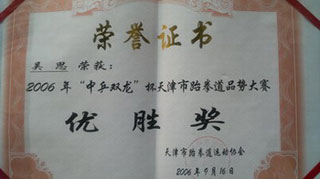 荣誉证书
吴思 荣获：
2006年“中乒双龙”杯天津市跆拳道品势大赛
优胜奖
天津市跆拳道运动协会
2006年9月16日